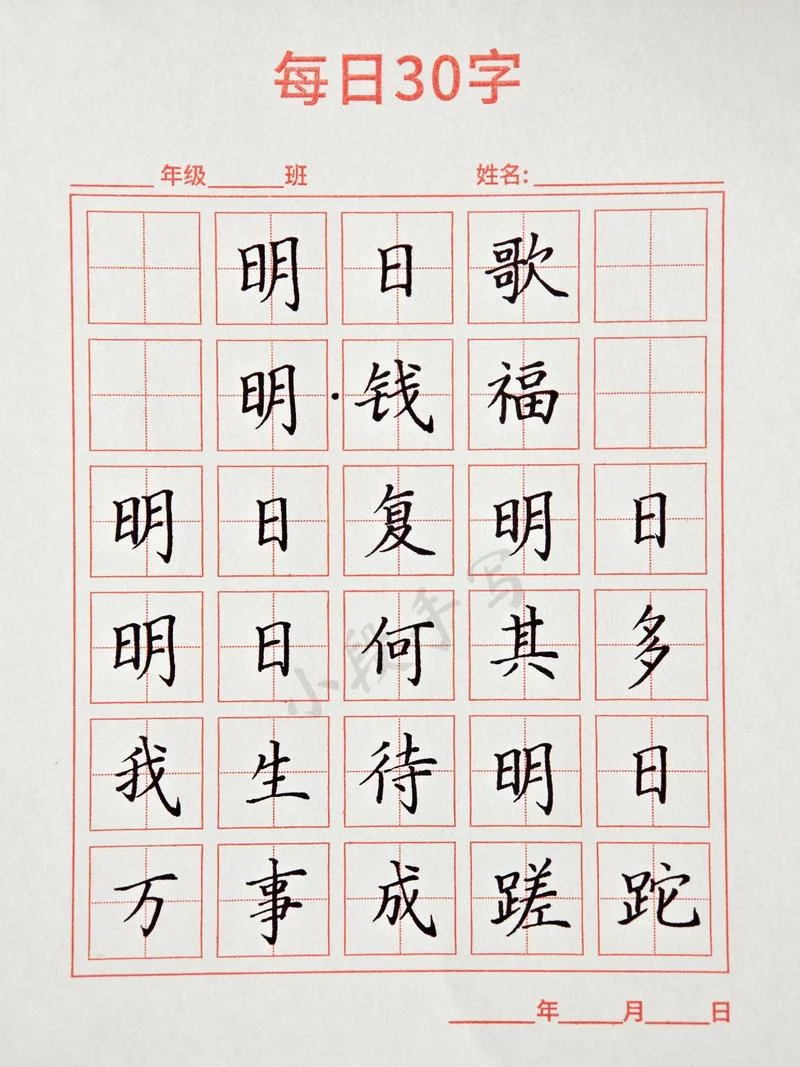 每日30字
年级 班 姓名:
明日歌
明·钱福
明日复明日
明日何其多
我生待明日
万事成蹉跎
小段手写
年 月 日